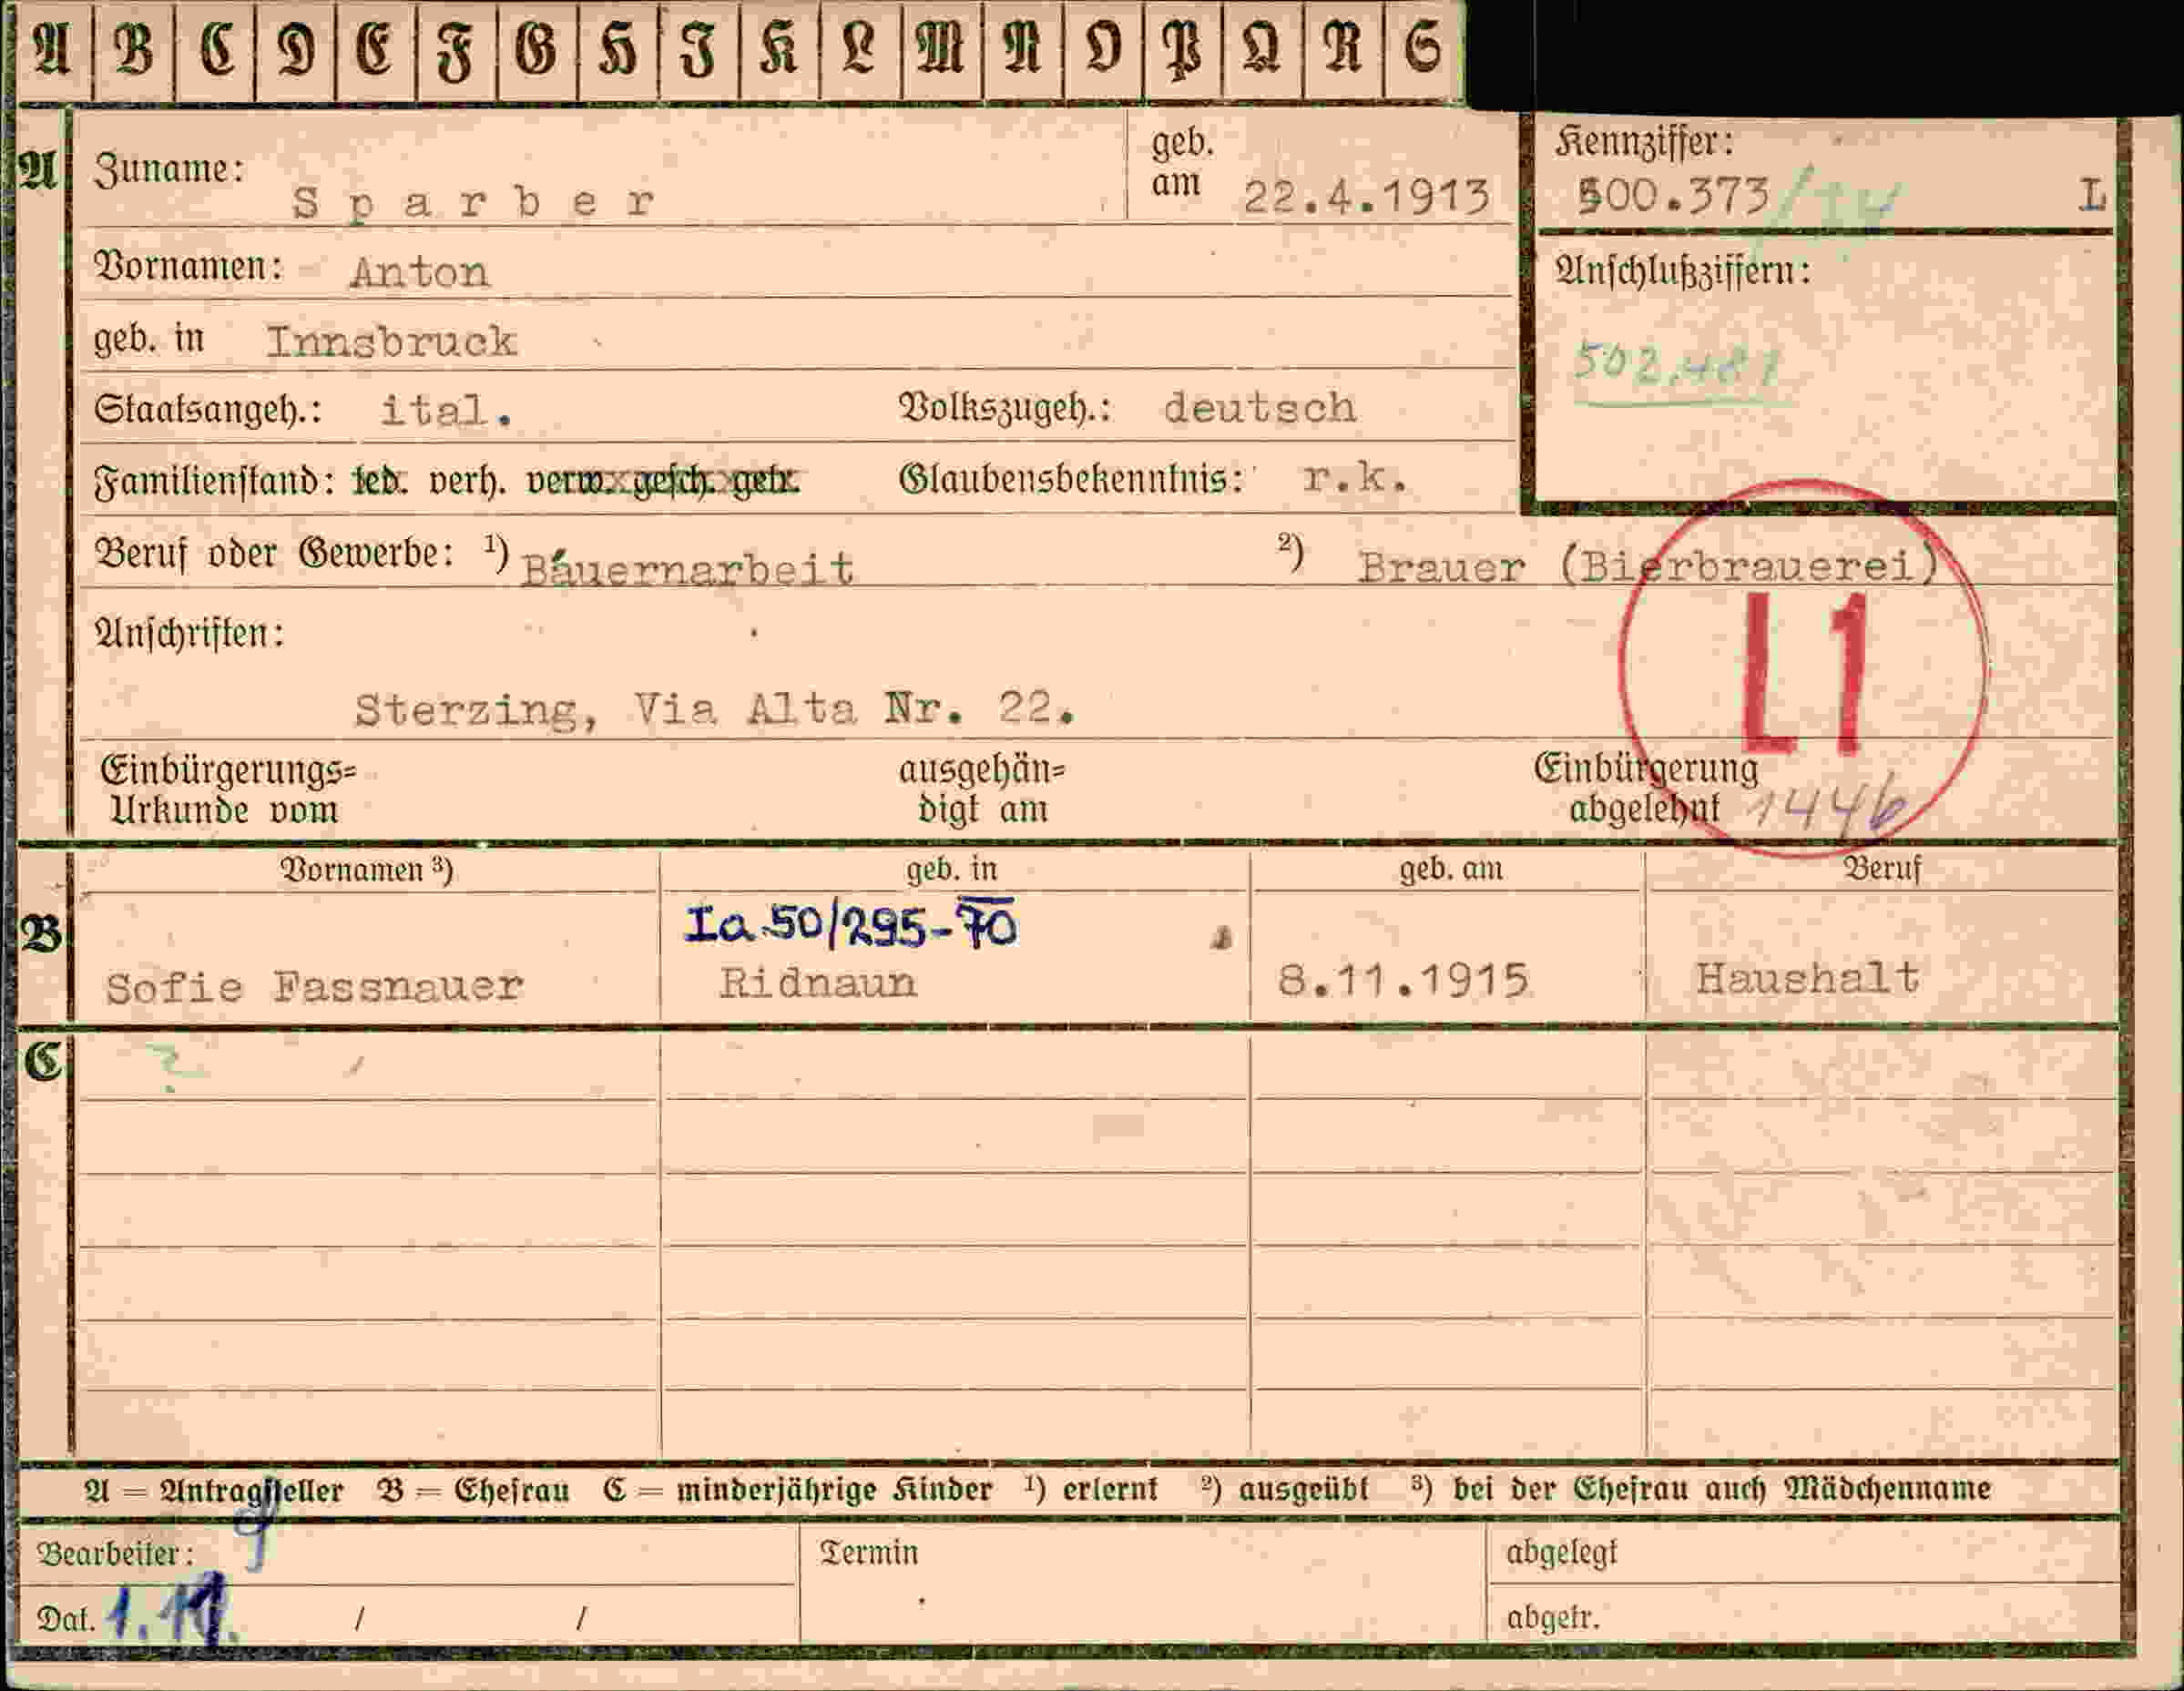 A B C D E F G H J K L M N O P Q R S
A Zuname: Sparber geb. am 22.4.1913
Kennziffer: 500.373 L
Vornamen: Anton
Anschlußziffern: 502.481
geb. in Innsbruck
Staatsangeh.: ital. Volkszugeh.: deutsch
Familienstand: led. verh. verw. gesch. getr. Glaubensbekenntnis: r.k.
Beruf oder Gewerbe: 1) Bauernarbeit 2) Brauer (Bierbrauerei)
L1
Anschriften:
Sterzing, Via Alta Nr. 22.
Einbürgerungs= ausgehän= Einbürgerung
Urkunde vom digt am abgelehnt 1446
Vornamen 3) geb. in geb. am Beruf
Ia.50/295-70
B Sofie Fassnauer Ridnaun 8.11.1915 Haushalt
C ?
A = Antragsteller B = Ehefrau C = minderjährige Kinder 1) erlernt 2) ausgeübt 3) bei der Ehefrau auch Mädchenname
Bearbeiter: Termin abgelegt
Dat. / / abgetr.